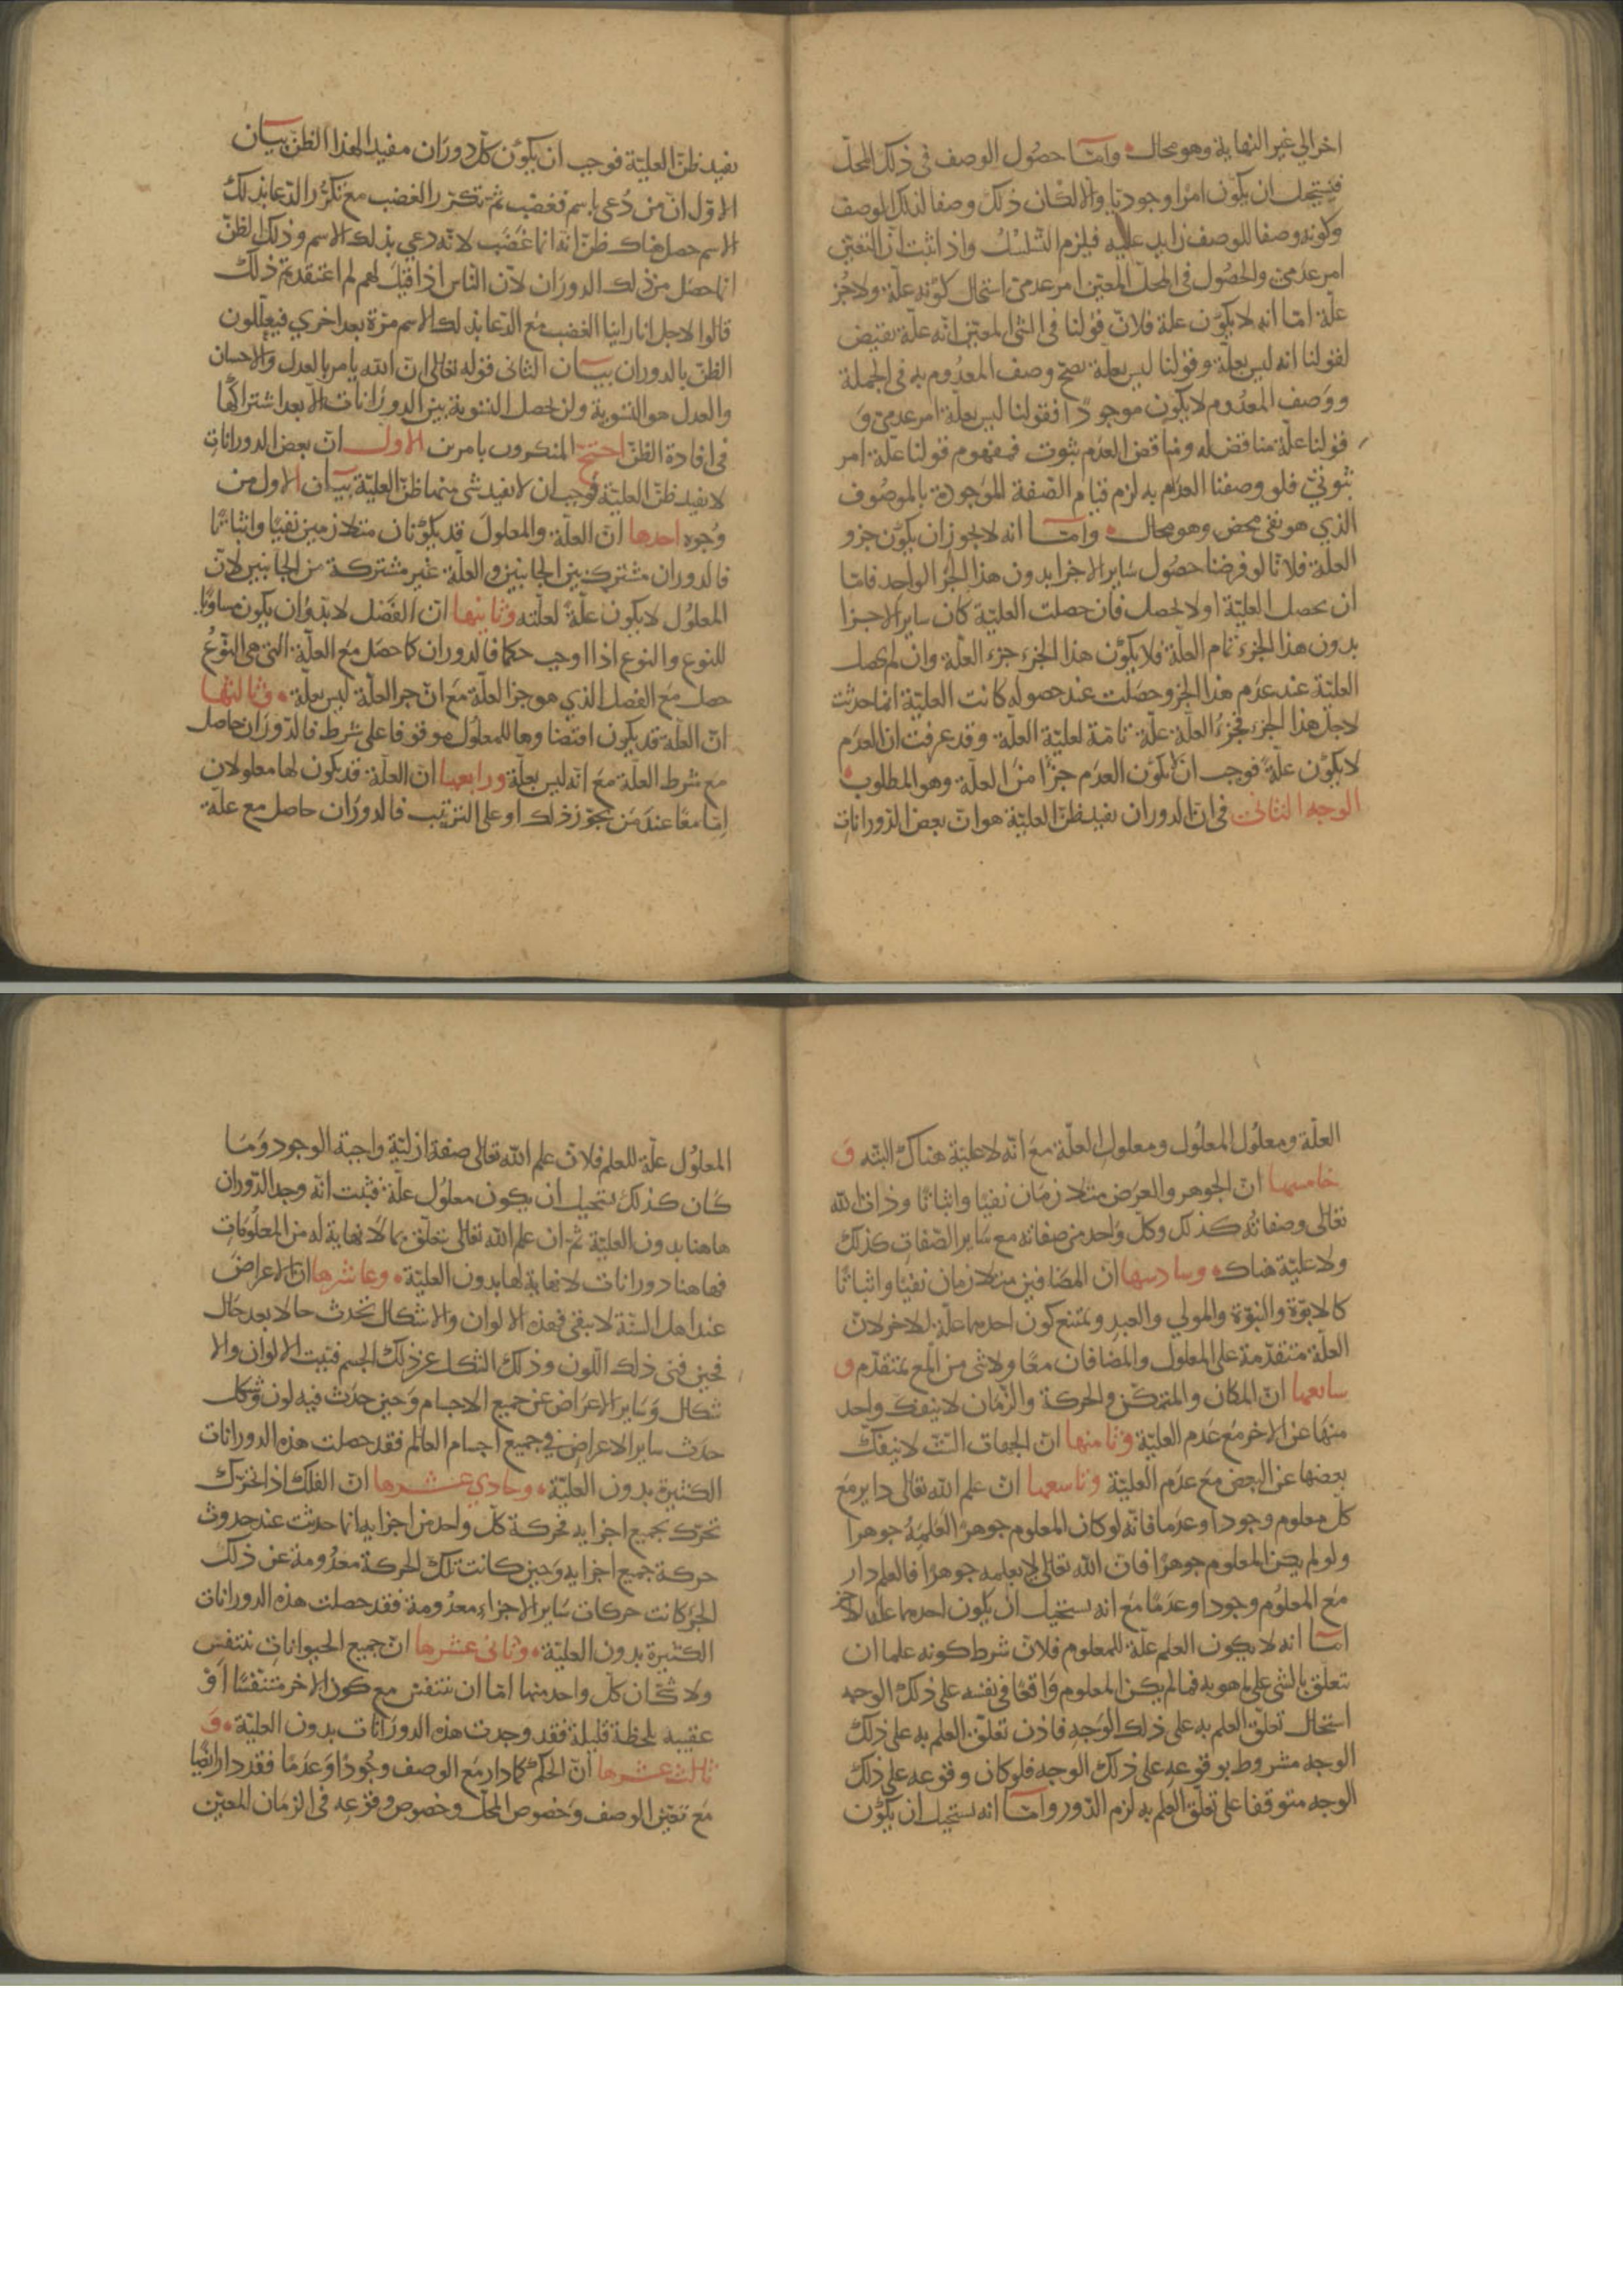 اخر الي غير النهاية وهو محال وامّا حصُول الوصف في ذلك المحلّ
فيستحيل ان يكون امرا وجوديّا والا لكان ذلك وصفا لذلك الوصف
وكونه وصفا للوصف زايد عليه فيلزم التسلسُل واذا ثبت انّ التعيّن
امر عدمىّ والحصُول فى المحلّ المعيّن امر عدمىّ استحال كونه علّة ولا جُز
علّة امّا انه لا يكون علة فلانّ قولنا فى الشى المعيّن انّه علّة نقيض
لقولنا انه ليس بعلّة وقولنا ليس بعلّة يصحّ وصف المعدُوم به فى الجملة
ووَصف المعدُوم لا يكون موجودًا فقولنا ليس بعلّة امر عدمىّ وَ
قولنا علّة مناقض له ومناقض العدَم ثبوت فمفهوم قولنا علّة امر
ثبوتىّ فلو وصفنا العدَم به لزم قيام الصّفة الموَجودة بالموصُوف
الذي هو نفى محض وهو محال وامّا انه لا يجوز ان يكون جزو
العلّة فلانّا لو فرضنا حصُول سَاير الاجزا بدون هذا الجُز الواحد فامّا
ان يحصل العليّة اولا يحصل فان حصلت العليّة كان ساير الاجزا
بدون هذا الجزء تمام العلّة فلا يكوّن هذا الجزء جزء العلّة وان لم يحصل
العليّة عند عدَم هذا الجز وحصَلت عند حصوله كانت العليّة انما حدثت
لاجل هذا الجزء فجزءُ العلّة علّة تامّة لعليّة العلّة وقد عرفت ان العدَم
لا يكون علّةً فوجب ان لا يكوّن العدَم جزًا منَ العلّة وهو المطلوب
الوجه الثانى فى انّ الدوران يفيد ظنّ العليّة هو انّ بعض الدّورانات
يفيد ظنّ العليّة فوجب ان يكون كلّ دورَان مفيدا لهذا الظنّ بيان
الاوّل انّ من دُعي باسم فغضب ثمّ تكرّر الغضب مَع تكرُّر الدّعا بذلك
الاسم حصل هناك ظنّ انه انما غَضب لانّه دعي بذلك الاسم وذلك الظنّ
انما حصَل من ذلك الدورَان لانّ النّاس اذا قيل لهم لم اعتقدتم ذلك
قالوا لاجل انا راينا الغضب مع الدّعا بذلك الاسم مرّة بعد اخري فيعلّلون
الظنّ بالدوران بيان الثانى قوله تعالى انّ الله يامر بالعدل والاحسان
والعدل هو التسوية ولن تحصل التسوية بين الدورَانات الّا بعد اشتراكها
فى افادة الظنّ احتجّ المنكرون بامرين الاول انّ بعض الدورانات
لا يفيد ظنّ العليّة فوجب ان لا يفيد شى منها ظنّ العليّة بيان الاول من
وُجوه احدها انّ العلّة والمعلول قد يكوُنان متلازمين نفيًا واثباتًا
فالدوران مشترك بين الجانبين والعلّة غير مشتركة من الجانبين لانّ
المعلوُل لا يكون علّةً لعلّته وثانيها انّ الفَصْل لا بدّ وان يكون مساويًا
للنوع والنوع اذا اوجب حكما فالدوران كما حصَل مَع العلّة التى هى النّوعُ
حصل مَع الفصل الذي هو جز العلّة مَع انّ جز العلّة ليس بعلّة وثالثها
انّ العلّة قد يكون اقتضاوها للمعلول موقوفا على شرط فالدّورَان حاصل
مع شرط العلّة مَعَ انّه ليس بعلّة ورابعها انّ العلّة قد يكون لها معلولان
امّا معًا عند مَن يجوّز ذلك او على الترتيب فالدورَان حاصل مع علّة
العلّة ومعلُول المعلُول ومعلول العلّة مَع انّه لا عليّة هناك البتّه وَ
خامسها انّ الجوهر والعرَض متلازمَان نفيًا واثباتًا وذات الله
تعالى وصفاتُه كذلك وكلّ وَاحد من صفاته مع سَاير الصّفات كذلك
ولا عليّة هناك وسادسها انّ المضافين متلازمان نفيًا واثباتًا
كالابوّة والبنوّة والمولي والعبد ويمتنع كون احدهما علّة للاخر لانّ
العلّة متقدّمة على المعلول والمضافان معًا ولا شى من المع بمتقدّم وَ
سابعها انّ المكان والمتمكّن والحركة والزّمان لا ينفكّ واحد
منهَا عن الاخر مَع عَدم العليّة وثامنها انّ الجهات السّتّ لا ينفكّ
بعضها عن البعض مَع عدَم العليّة وتاسعها انّ علم الله تعالى داير مَع
كلّ معلوم وجودا وعدَما فانّه لو كان المعلوم جوهرًا لعَلِمَهُ جوهرا
ولو لم يكن المعلوم جوهرًا فانّ الله تعالى لا يعلمه جوهرًا فالعلم دار
مَع المعلُوم وجودا وعَدمًا مَع انه يستحيل ان يكون احدهما علّة للاخر
امّا انه لا يكون العلم علّة للمعلوم فلانّ شرط كونه علما ان
يتعلّق بالشى على ما هو به فما لم يكن المعلوم وَاقعًا فى نفسه على ذلك الوجه
استحال تعلّق العلم به على ذلك الوَجه فاذن تعلّق العلم به على ذلك
الوجه مشروط بوقوعه على ذلك الوجه فلو كان وقوعه على ذلك
الوجه متوقفا على تعلّق العلم به لزم الدّور وامّا انه يستحيل ان يكوّن
المعلوُل علّة للعلم فلانّ علم الله تعالى صفة ازليّة واجبة الوجود وَمَا
كان كذلك يستحيل ان يكون معلوُل علّة فثبت انّه وجد الدّوران
هاهنا بدون العليّة ثمّ انّ علم الله تعالى يتعلّق بما لا نهاية له من المعلُومَات
فهاهنا دورانات لا نهاية لها بدون العليّة وعاشرها انّ الاعراض
عند اهل السنّة لا يبقى فهذه الالوان والاشكال تحدث حالا بعد حَال
فحين فنى ذلك اللّون وذلك الشكل عن ذلك الجسم فنيت الالوان والا
شكال وَساير الاعرَاض عن جميع الاجسام وَحين حدَث فيه لون وشكل
حدَث ساير الاعراض في جميع اجسام العالَم فقد حصلت هذه الدورانات
الكثيرة بدون العليّة وحادي عشرها انّ الفلك اذا تحرّك
تحرّك بجميع اجزايه فحركة كلّ واحد من اجزايه انما حدثت عند حدوث
حركة جميع اجزايه وَحين كانت تلك الحركة معدُومة عن ذلك
الجز كانت حركات سَاير الاجزاء معدُومة فقد حصلت هذه الدورانات
الكثيرة بدون العليّة وثانى عشرها انّ جميع الحيوانات تتنفّس
ولا شكّ ان كلّ واحد منها امّا ان يتنفس مع كون الاخر متنفّسًا اَوْ
عقيبه بلحظة قليلة فقد وجدت هذه الدورَانات بدون العليّة وَ
ثالث عشرها انّ الحكم كما دار مَع الوصف وجُودًا وَعدَمًا فقد دار ايضًا
مَع تعيّن الوصف وَخصُوص المحلّ وخصُوص وقوُعه فى الزمَان المعيّن